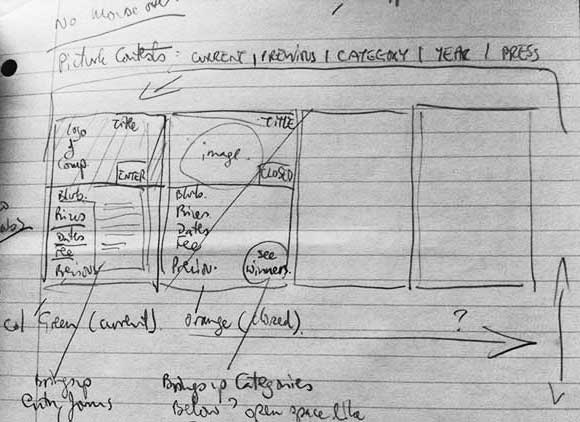 No mouse over
Picture Contests : CURRENT | PREVIOUS | CATEGORY | YEAR | PRESS
Logo
of
Comp
Title
ENTER
Blurb.
Prizes
Dates
Fee
Previous
TITLE
image.
CLOSED
Blurb.
Prizes
Dates
Fee
Previous.
see
winners.
col Green (current).
Orange (closed).
?
Brings up
Entry forms
Brings up Categories
Below? open space like